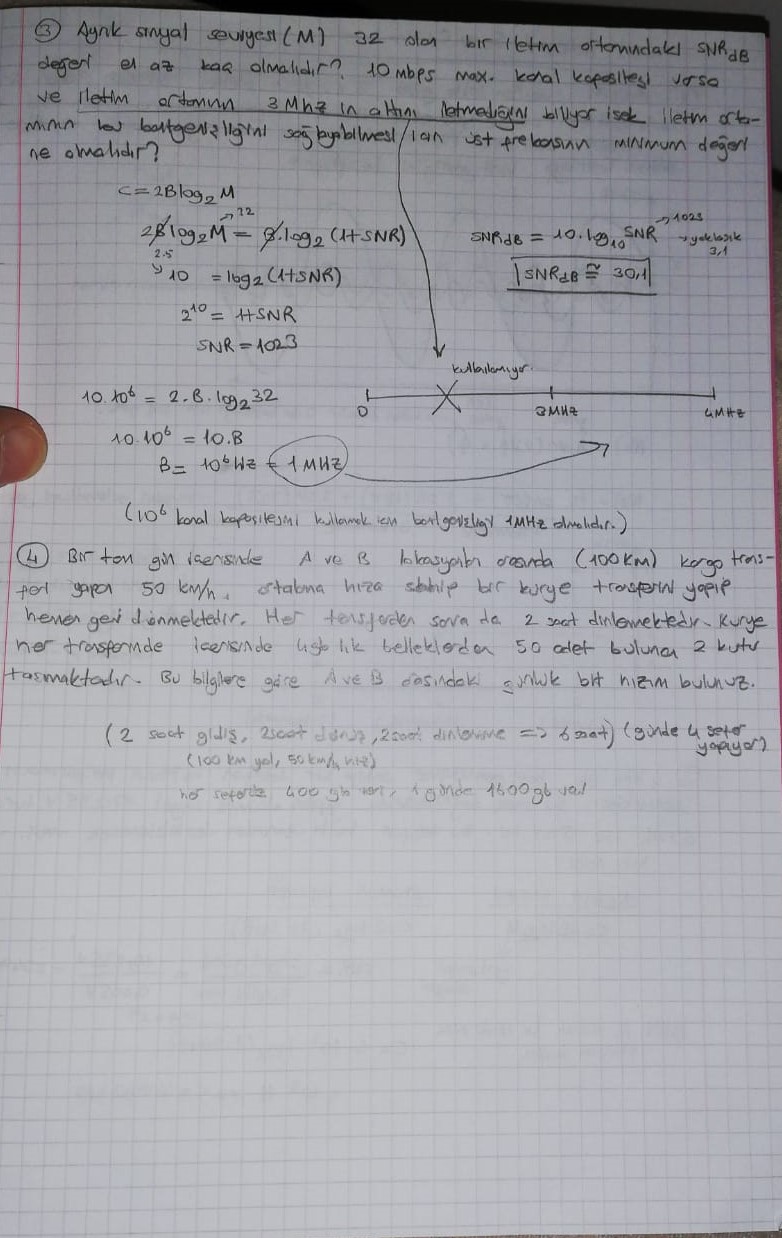 ③ Ayrık sinyal seviyesi (M) 32 olan bir iletim ortamındaki SNRdB
değeri en az kaç olmalıdır? 10 mbps max. kanal kapasitesi varsa
ve iletim ortamının 3 Mhz in altını iletmediğini biliyor isek iletim orta-
mının bu bantgenişliğini sağlayabilmesi için üst frekansının minimum değeri
ne olmalıdır?
C = 2B log₂ M
→ 32
2B log₂ M = B. log₂ (1+SNR)
2.5
→ 10 = log₂ (1+SNR)
2¹⁰ = 1+SNR
SNR = 1023
→ 1023
SNRdB = 10. log₁₀ SNR → yaklaşık
3,1
SNRdB ≅ 30,1
kullanılamıyor.
0 3MHz 4MHz
10.10⁶ = 2. B. log₂ 32
10.10⁶ = 10.B
B = 10⁶ Hz = 1 MHz
(10⁶ kanal kapasitesini kullanmak için bantgenişliği 1MHz olmalıdır.)
④ Bir tam gün içerisinde A ve B lokasyonları arasında (100 km) kargo trans-
feri yapan 50 km/h. ortalama hıza sahip bir kurye transferini yapıp
hemen geri dönmektedir. Her transferden sonra da 2 saat dinlenmektedir. Kurye
her transferinde içerisinde 4gb lık belleklerden 50 adet bulunan 2 kutu
taşımaktadır. Bu bilgilere göre A ve B arasındaki günlük bit hızını bulunuz.
(2 saat gidiş, 2 saat dönüş, 2 saat dinlenme => 6 saat) (günde 4 sefer
yapıyor)
(100 km yol, 50 km/h hız)
her seferde 400 gb veri, 1 günde 1600 gb veri